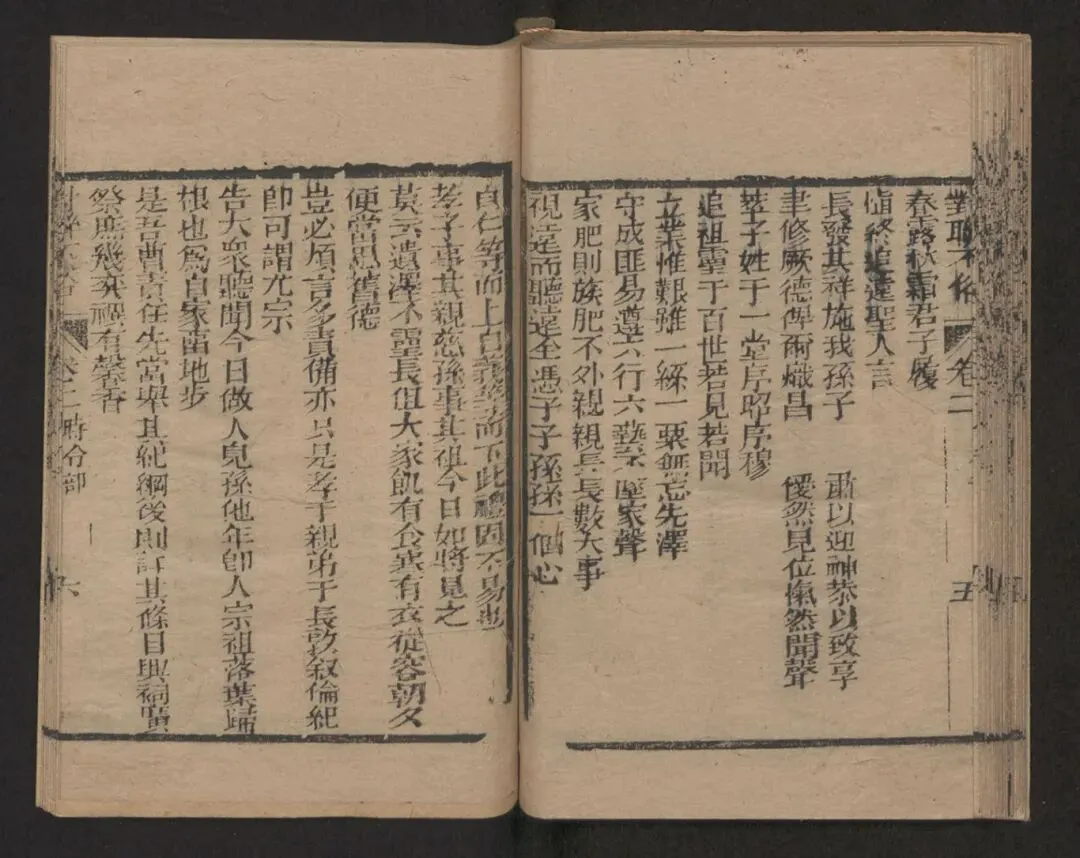 對聯不俗 卷二 五
春露秋霜君子履
愼終追遠聖人言
長發其祥施我孫子 肅以迎神恭以致享
聿修厥德俾爾熾昌 僾然見位愾然聞聲
萃子姓于一堂序昭序穆
追祖靈于百世若見若聞
立業惟艱雖一絲一粟無忘先澤
守成匪易遵六行六藝以墜家聲
家肥則族肥不外親親長長數大事
視遠而聽遠全憑子子孫孫一個心
自仁等而上自義等而下此禮固不易也
孝子事其親慈孫事其祖今日如將見之
莫云遺澤不靈長但大家飢有食寒有衣從容朝夕
便當思舊德
豈必煩言多責備亦只是孝于親弟于長敦叙倫紀
卽可謂尤宗
告大衆聽聞今日做人兒孫他年卽人宗祖落葉歸
根也爲自家畱地步
是吾曹責任先當舉其紀綱後則訂其條目興祠廣
祭庶幾死禩有馨香
卷二 時令部 六